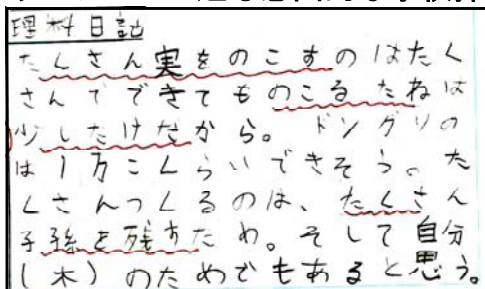 理科日誌
たくさん実をのこすのはたく
さんでできてものこるたねは
少しだけだから。ドングリの
は1万こくらいできそう。た
くさんつくるのは、たくさん
子孫を残すため。そして自分
(木)のためでもあると思う。